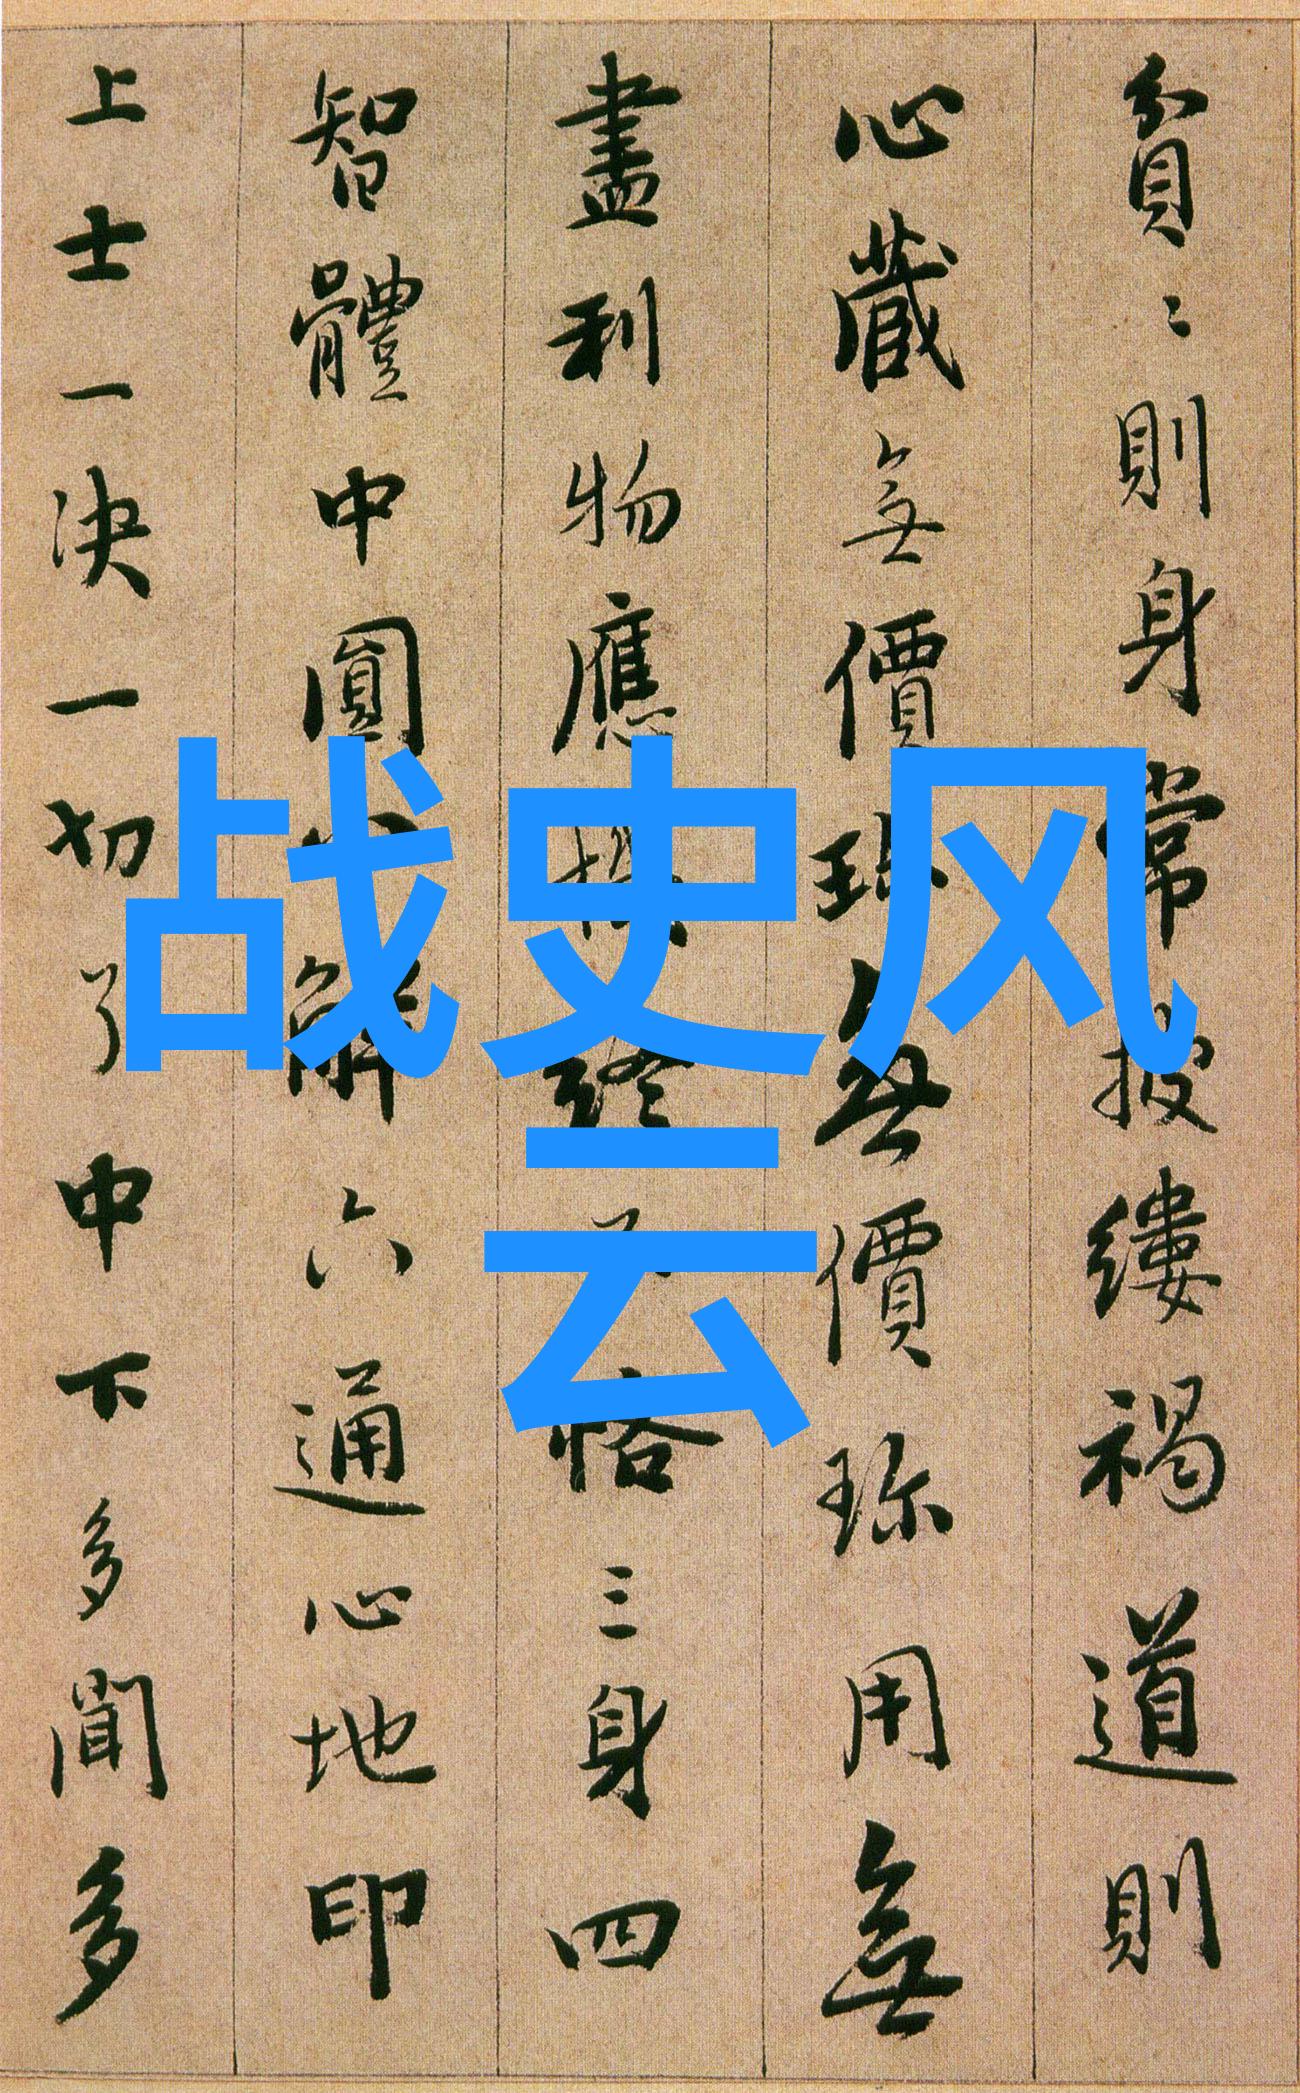 貧〻則身常披縷褐道則
心藏無價珎無價珎用無
盡利物應機終恪三身四
智體中圓解六通心地印
上士一決一切了中下多聞多
战史风
云